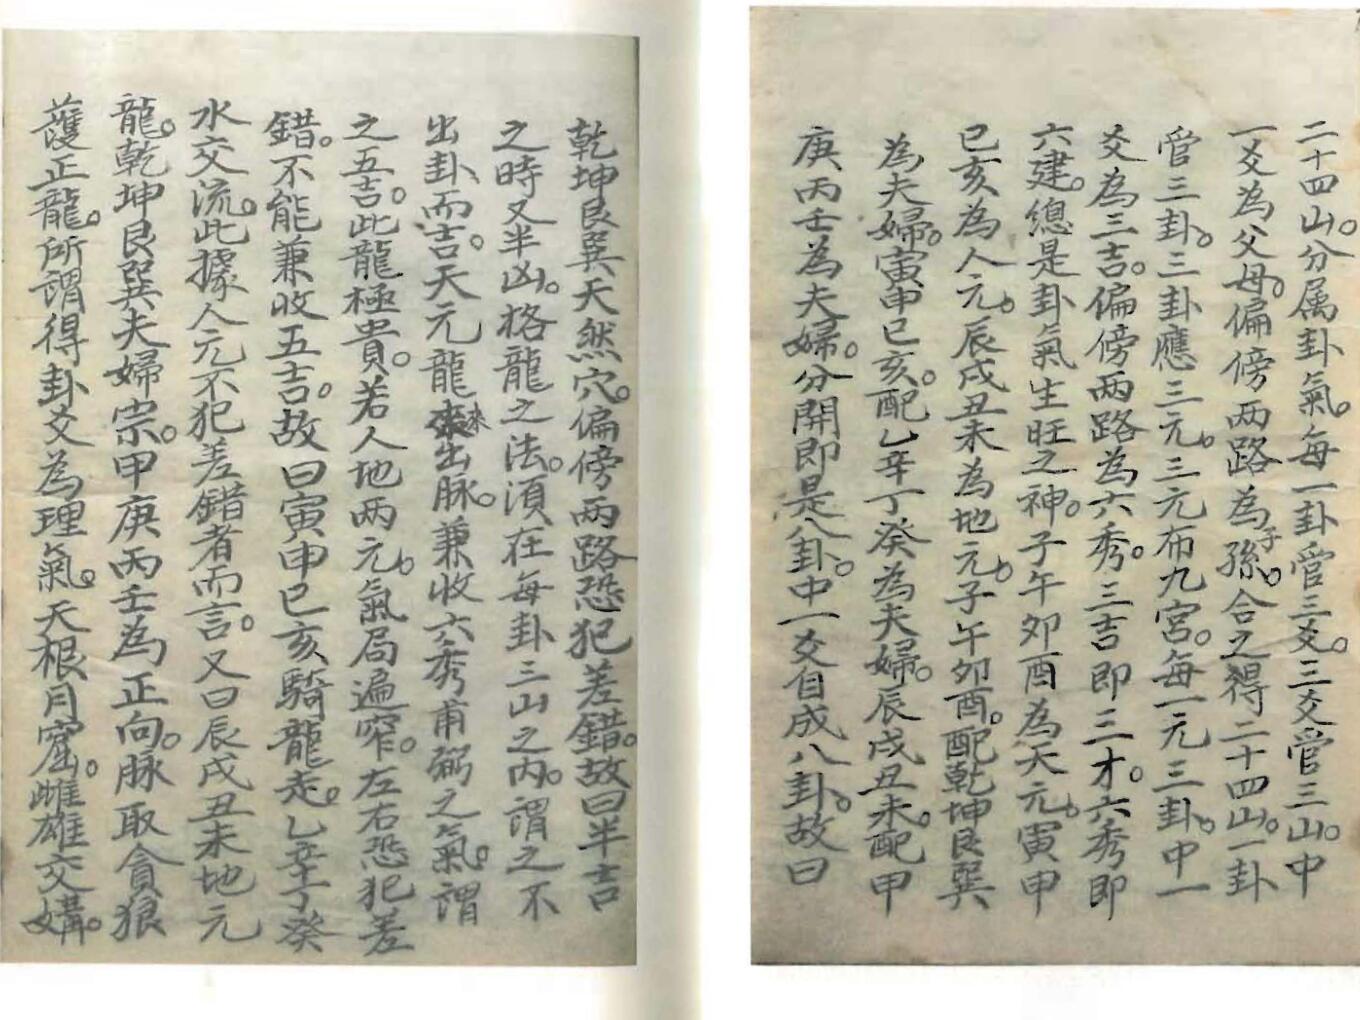 二十四山。分属卦氣。每一卦管三爻。三爻管三山。中
一爻為父母。偏傍兩路為子孫。合之得二十四山。一卦
管三卦。三卦應三元。三元布九宮。每一元三卦。中一
爻為三吉。偏傍兩路為六秀。三吉即三才。六秀即
六建。總是卦氣生旺之神。子午卯酉為天元。寅申
巳亥為人元。辰戌丑未為地元。子午卯酉。配乾坤艮巽
為夫婦。寅申巳亥。配乙辛丁癸為夫婦。辰戌丑未。配甲
庚丙壬為夫婦。分開即是八卦。中一爻自成八卦。故曰
乾坤艮巽天然穴。偏傍兩路恐犯差錯。故曰半吉
之時又半凶。格龍之法。須在每卦三山之内。謂之不
出卦而吉。天元龍來出脉。兼收六秀甫弼之氣。謂
之五吉。此龍極貴。若人地两元。氣局遍窄。左右恐犯差
錯。不能兼收五吉。故曰寅申巳亥騎龍走。乙辛丁癸
水交流。此據人元不犯差錯者而言。又曰辰戌丑未地元
龍。乾坤艮巽夫婦宗。甲庚丙壬為正向。脉取貪狼
護正龍。所謂得卦爻為理氣。天根月窟。雌雄交媾。